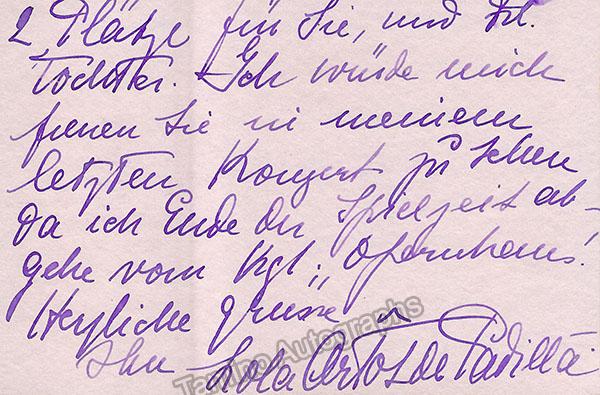 2 Plätze für Sie, und Frl.
Tochter. – Ich würde mich
freuen Sie in meinem
letzten Konzert zu sehen
da ich Ende der Spielzeit ab-
gehe vom Kgl. „Opernhaus!
Herzliche Grüsse
Ihre Lola Artôt de Padilla
Tamino Autographs